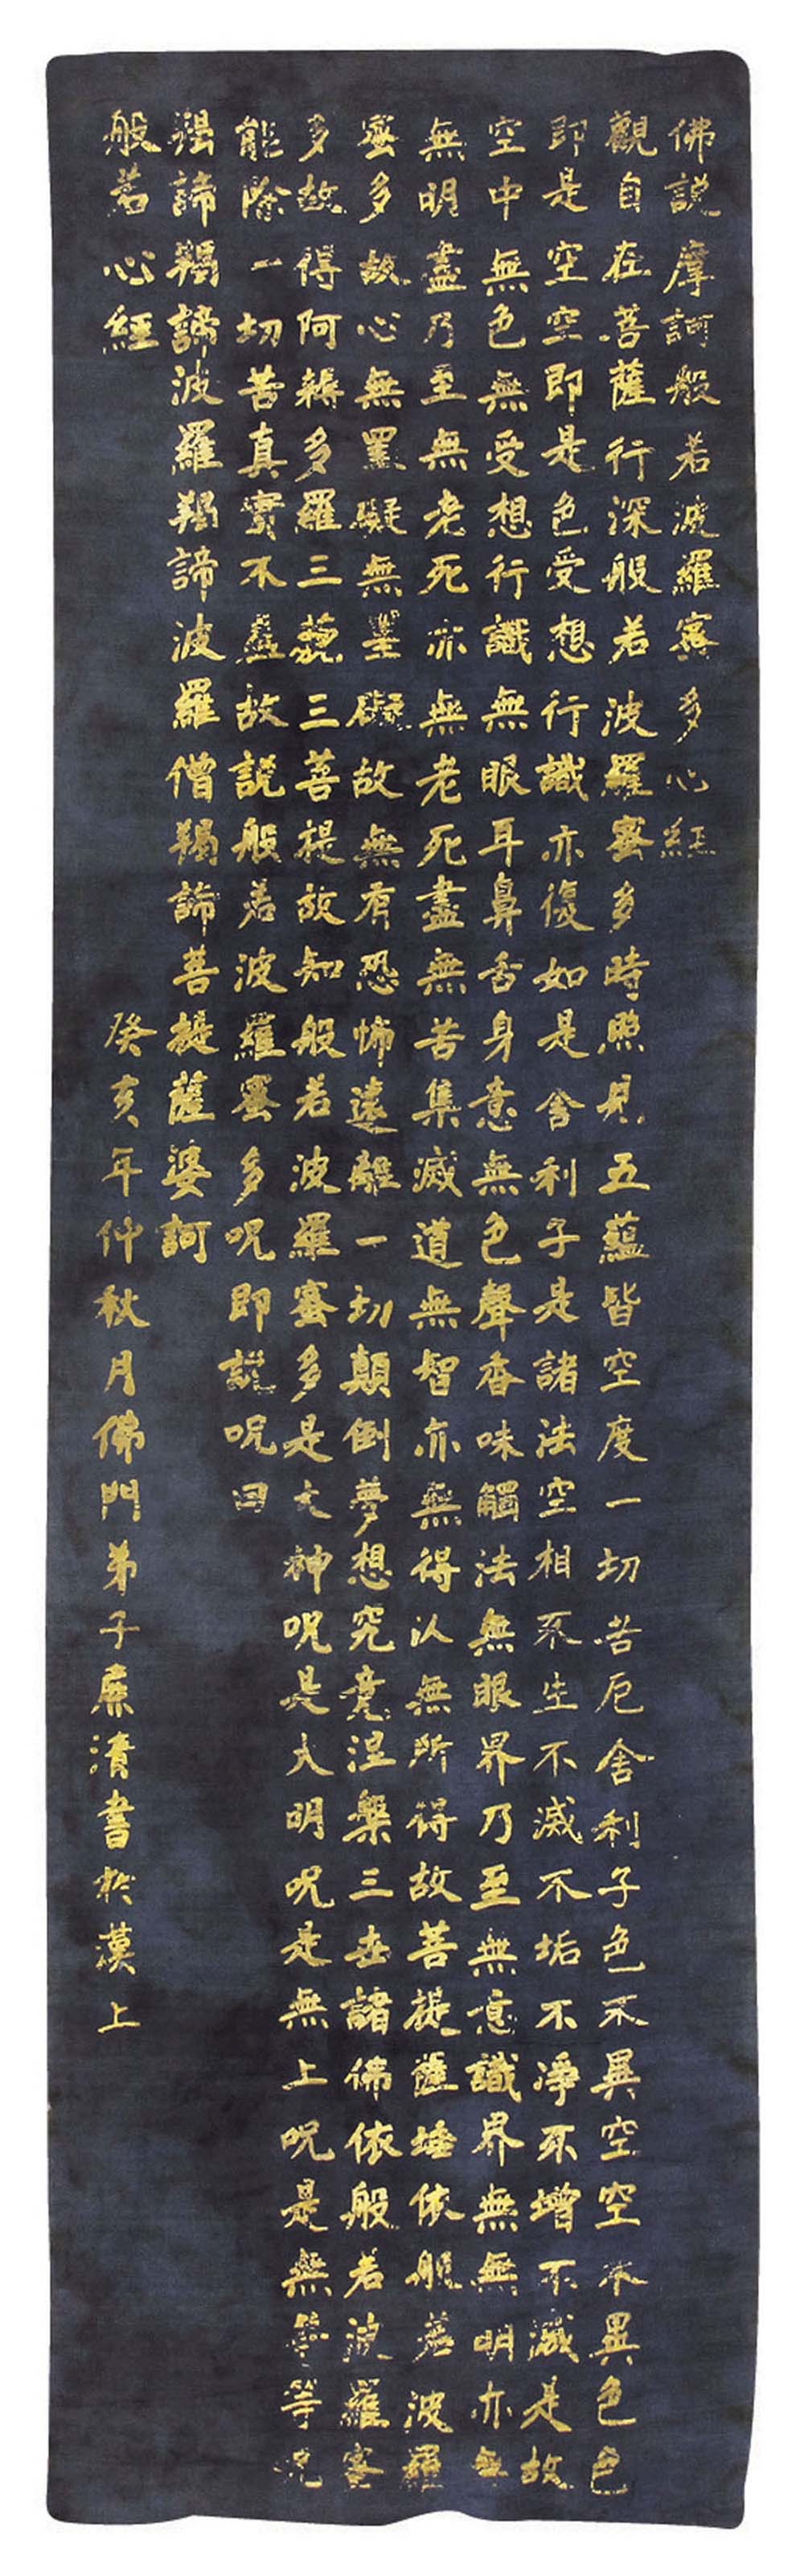 佛説摩訶般若波羅蜜多心經
觀自在菩薩行深般若波羅蜜多時照見五蘊皆空度一切苦厄舍利子色不異空空不異色色
即是空空即是色受想行識亦復如是舍利子是諸法空相不生不滅不垢不淨不增不滅是故
空中無色無受想行識無眼耳鼻舌身意無色聲香味觸法無眼界乃至無意識界無無明亦無
無明盡乃至無老死亦無老死盡無苦集滅道無智亦無得以無所得故菩提薩埵依般若波羅
蜜多故心無罣礙無罣礙故無有恐怖遠離一切顛倒夢想究竟涅槃三世諸佛依般若波羅蜜
多故得阿耨多羅三藐三菩提故知般若波羅蜜多是大神呪是大明呪是無上呪是無等等呪
能除一切苦真實不虛故説般若波羅蜜多呪即説呪曰
羯諦羯諦波羅羯諦波羅僧羯諦菩提薩婆訶
般若心經
癸亥年仲秋月佛門弟子廉清書於漢上